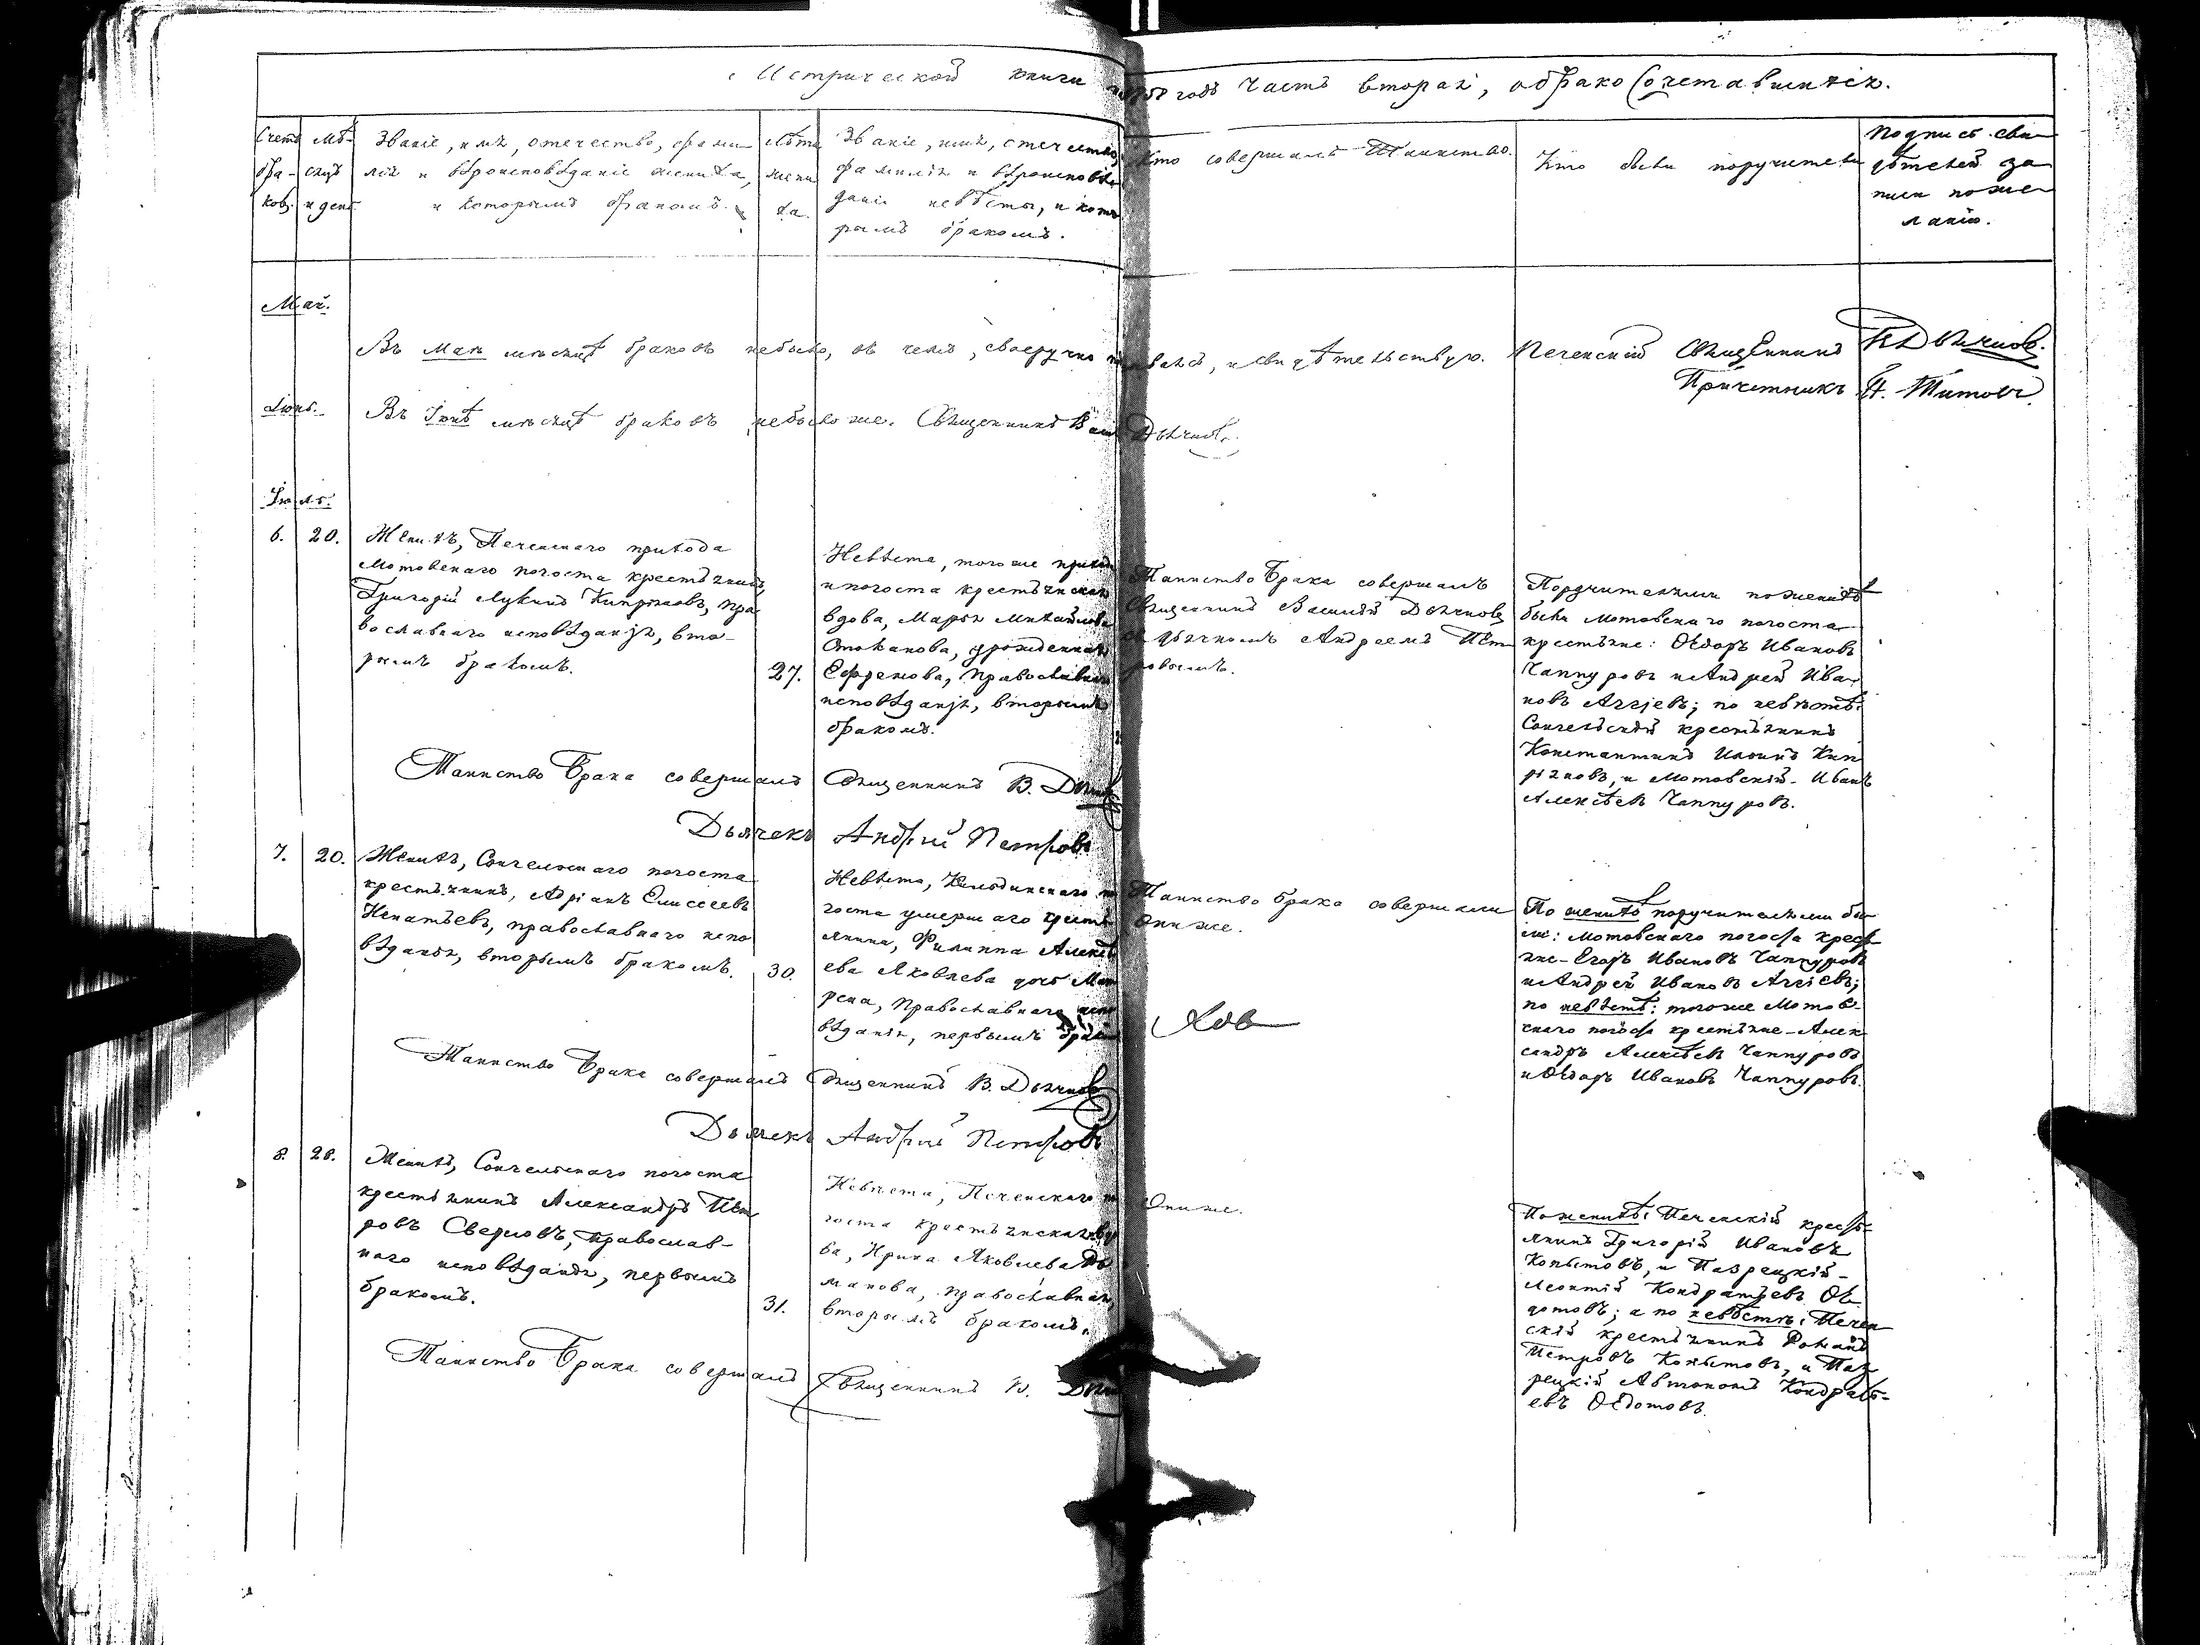 Метрической книги на 1858 годъ Часть вторая, о бракосочетавшихся.
Счетъ
бра-
ковъ.
Мѣ-
сяцъ
и день
Званіе, имя, отечество, фами-
лія и вѣроисповѣданіе жениха,
и которымъ бракомъ.
Лѣта
жени
ха.
Званіе, имя, отечество,
фамилія и вѣроисповѣ
даніе невѣсты, и кото
рымъ бракомъ.
Кто совершалъ Таинство.
Кто были поручители
Подпись сви-
дѣтелей за
писи по же-
ланію.
Май.
Въ Маѣ мѣсяцѣ браковъ небыло, въ чемъ, своеручно свидѣтельствую. Печенскій Священникъ В. Дьячковъ.
Причетникъ А. Титовъ.
Іюнь.
Въ Іюнѣ мѣсяцѣ браковъ небыло же. Священникъ Дьячковъ.
Іюль.
6. 20.
Женихъ, Печенскаго прихода
Мотовскаго погоста крестьянинъ,
Григорій Лукинъ Кипріяновъ, пра
вославнаго исповѣданія, вто-
рымъ бракомъ.
27.
Невѣста, того же прихода
и погоста крестьянская
вдова, Марья Михайлова
урожденная
православнаго
исповѣданія, вторымъ
бракомъ.
Таинство Брака совершалъ
Священникъ Василій Дьячковъ
съ дьячкомъ Андреемъ Пет
ровымъ.
Поручителями по женихѣ
были Мотовскаго погоста
крестьяне: Ѳедоръ Ивановъ
Чаппуровъ и Андрей Ива-
новъ Архіевъ; по невѣстѣ:
Сонгельскій крестьянинъ
Константинъ Кип
ріяновъ, и Мотовскій - Иванъ
Алексѣевъ Чаппуровъ.
Таинство Брака совершалъ Священникъ В. Дьячковъ
Дьячекъ Андрей Петровъ
7. 20.
Женихъ, Сонгельскаго погоста
крестьянинъ, Адріанъ Елисеевъ
Игнатьевъ, православнаго испо
вѣданія, вторымъ бракомъ.
30.
Невѣста, Кильдинскаго по
госта умершаго кресть
янина, Филиппа Алексѣ
ева Яковлева дочь Мат
рена, Православнаго испо
вѣданія, первымъ бракомъ
Таинство брака совершали
Они же.
По женихѣ поручителями бы-
ли: Мотовскаго погоста кресть
яне - Егоръ Ивановъ Чаппуровъ
и Андрей Ивановъ Архіевъ;
по невѣстѣ: того же Мотов-
скаго погоста крестьяне - Алек
сандръ Алексѣевъ Чаппуровъ
и Ѳедоръ Ивановъ Чаппуровъ.
Таинство Брака совершалъ Священникъ В. Дьячковъ
Дьячекъ Андрей Петровъ
8. 28.
Женихъ, Сонгельскаго погоста
крестьянинъ Александръ Пет
ровъ Сверловъ, православ-
наго исповѣданія, первымъ
бракомъ.
31.
Невѣста, Печенскаго по
госта крестьянская вдо
ва, Ирина Яковлева
манова, православная,
вторымъ бракомъ.
Они же.
По женихѣ: Печенскій кресть-
янинъ Григорій Ивановъ
Копытовъ, и Пазрецкій -
Леонтій Кондратьевъ Ѳе
дотовъ; а по невѣстѣ: Печен
скій крестьянинъ Романъ
Петровъ Копытовъ, и Паз
рецкій Автономъ Кондрать-
евъ Ѳедотовъ.
Таинство Брака совершалъ Священникъ В. Дьяч